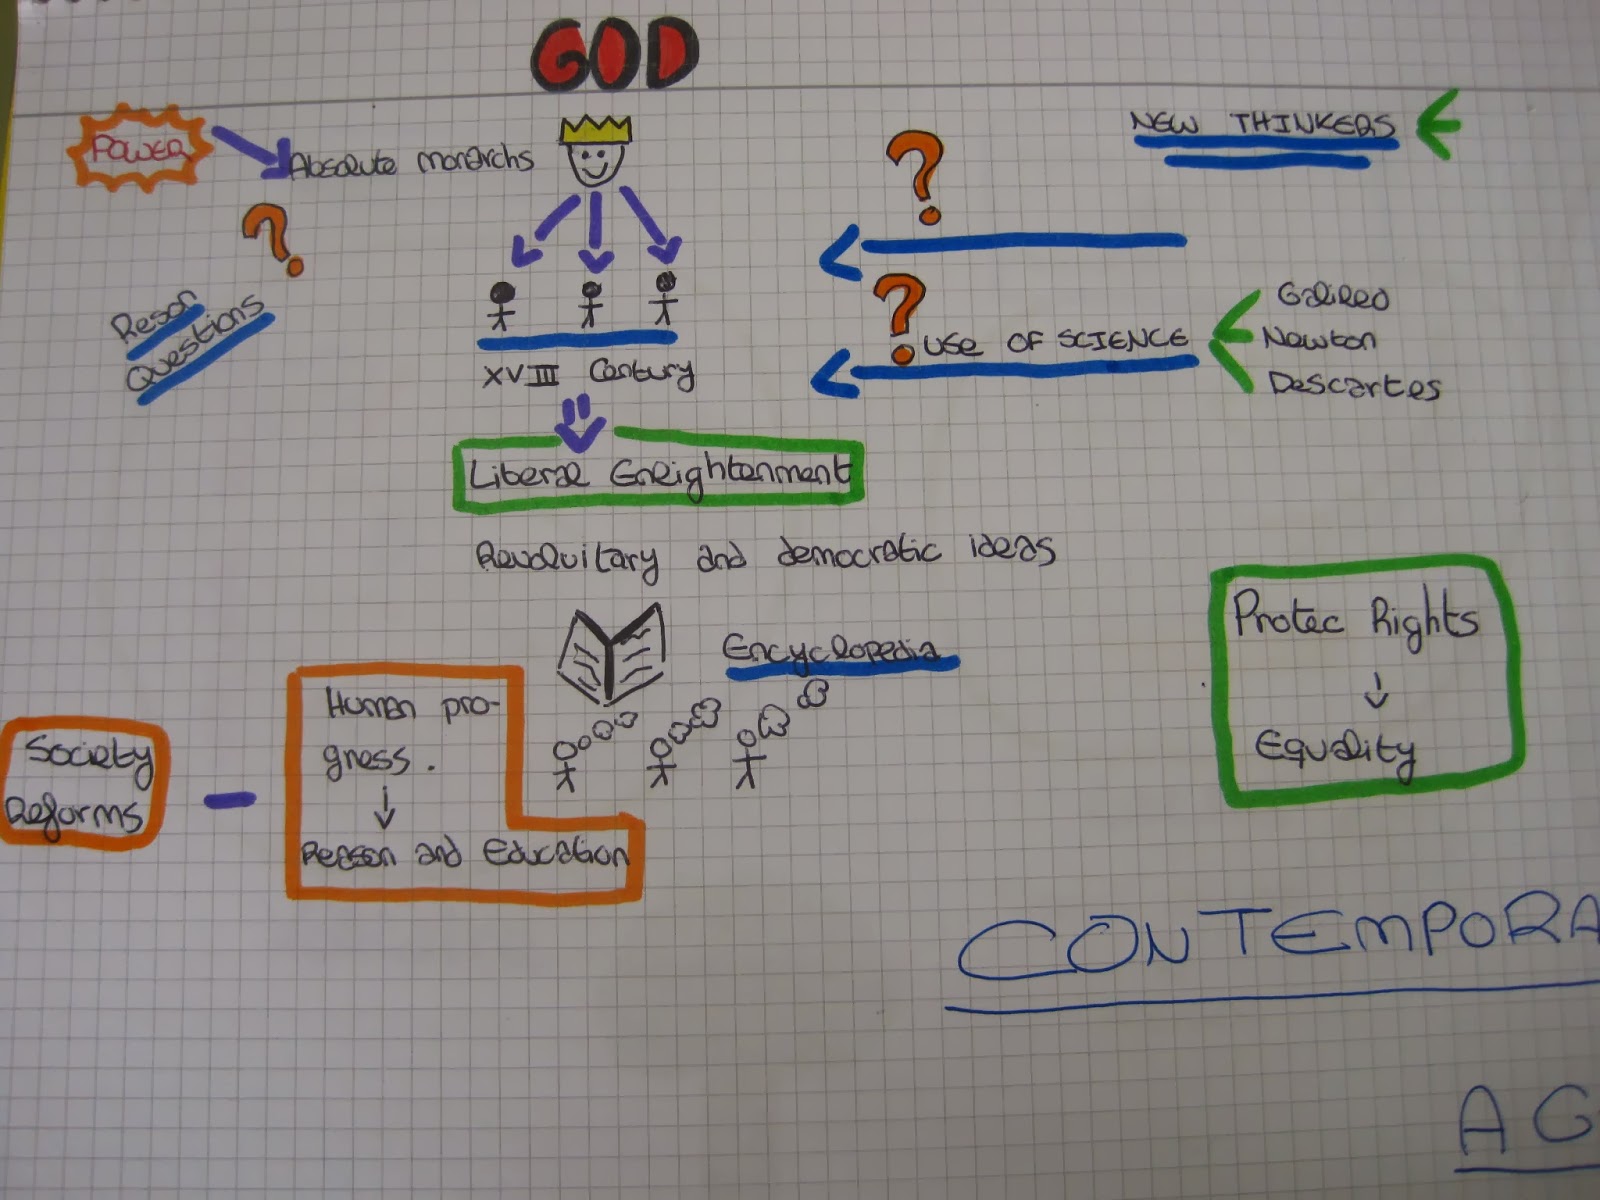 GOD
POWER
Absolute monarchs
NEW THINKERS
Reson
Questions
XVIII Century
USE OF SCIENCE
Galileo
Newton
Descartes
Liberal Enlightenment
Revoluitary and democratic ideas
Encyclopedia
Protec Rights
Equality
Society
Reforms
Human pro-
gress.
Reason and Education
CONTEMPORA
AG